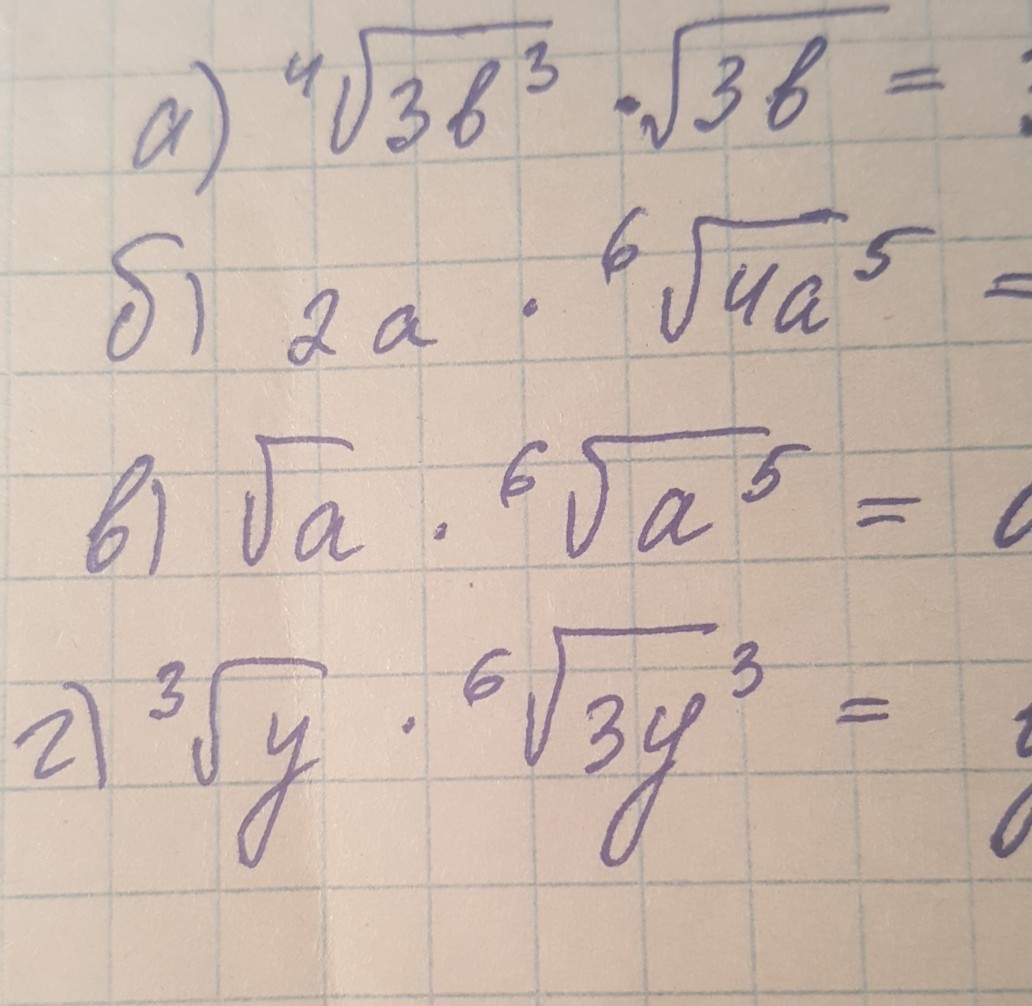 а) ⁴√3b³ · √3b =
б) 2a · ⁶√4a⁵ =
в) √a · ⁶√a⁵ =
г) ³√y · ⁶√3y³ =